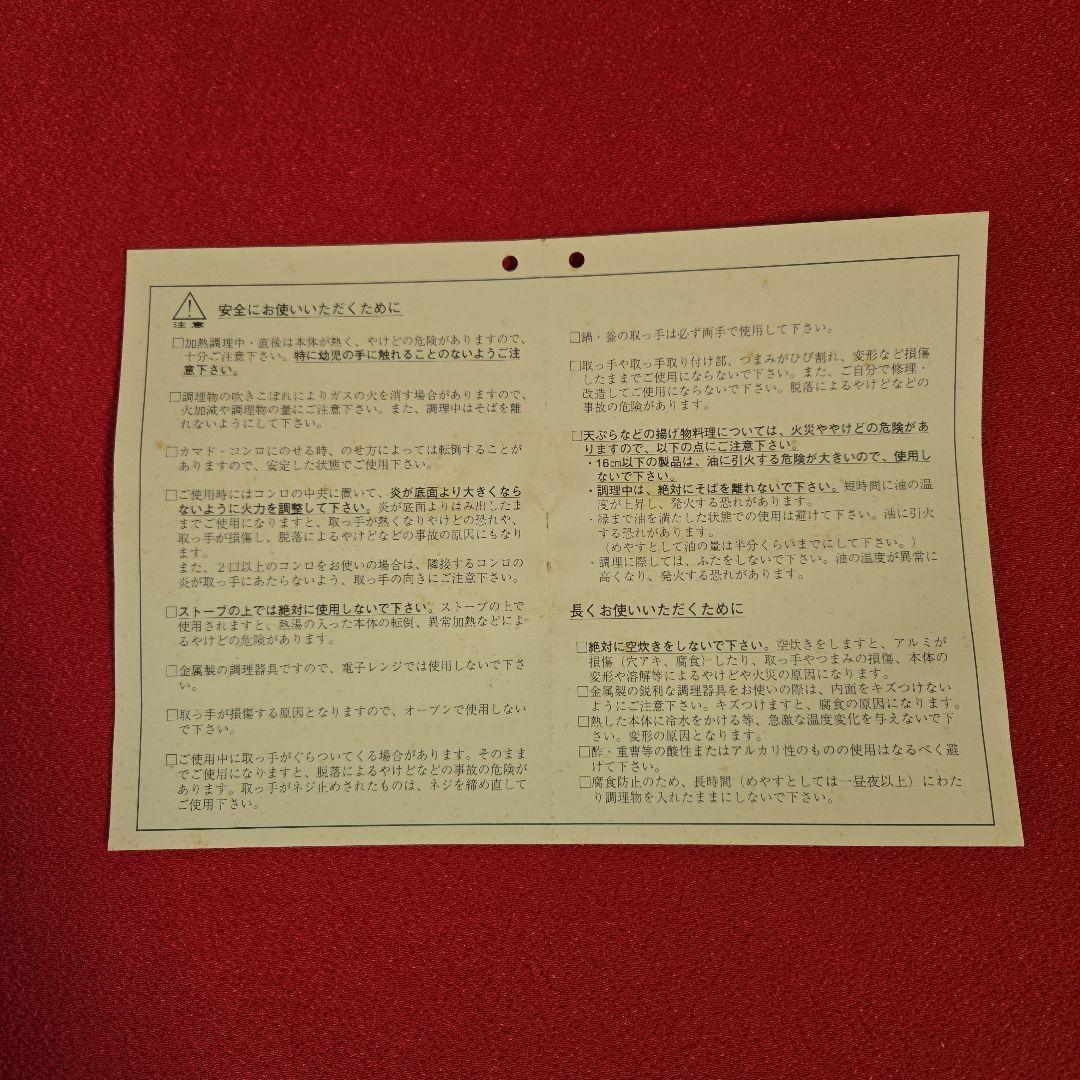 安全にお使いいただくために
注意
□加熱調理中・直後は本体が熱く、やけどの危険がありますので、
十分ご注意下さい。特に幼児の手に触れることのないようご注
意下さい。
□調理物の吹きこぼれによりガスの火を消す場合がありますので、
火加減や調理物の量にご注意下さい。また、調理中はそばを離
れないようにして下さい。
□カマド・コンロにのせる時、のせ方によっては転倒することが
ありますので、安定した状態でご使用下さい。
□ご使用時にはコンロの中央に置いて、炎が底面より大きくなら
ないように火力を調整して下さい。炎が底面よりはみ出したま
までご使用になりますと、取っ手が熱くなりやけどの恐れや、
取っ手が損傷し、脱落によるやけどなどの事故の原因にもなり
ます。
また、2口以上のコンロをお使いの場合は、隣接するコンロの
炎が取っ手にあたらないよう、取っ手の向きにご注意下さい。
□ストーブの上では絶対に使用しないで下さい。ストーブの上で
使用されますと、熱湯の入った本体の転倒、異常加熱などによ
るやけどの危険があります。
□金属製の調理器具ですので、電子レンジでは使用しないで下さ
い。
□取っ手が損傷する原因となりますので、オーブンで使用しない
で下さい。
□ご使用中に取っ手がぐらついてくる場合があります。そのまま
でご使用になりますと、脱落によるやけどなどの事故の危険が
あります。取っ手がネジ止めされたものは、ネジを締め直して
ご使用下さい。
□鍋・釜の取っ手は必ず両手で使用して下さい。
□取っ手や取っ手取り付け部、つまみがひび割れ、変形など損傷
したままでご使用にならないで下さい。また、ご自分で修理・
改造してご使用にならないで下さい。脱落によるやけどなどの
事故の危険があります。
□天ぷらなどの揚げ物料理については、火災ややけどの危険があ
りますので、以下の点にご注意下さい。
・16cm以下の製品は、油に引火する危険が大きいので、使用し
ないで下さい。
・調理中は、絶対にそばを離れないで下さい。短時間に油の温
度が上昇し、発火する恐れがあります。
・縁まで油を満たした状態での使用は避けて下さい。油に引火
する恐れがあります。
（めやすとして油の量は半分くらいまでにして下さい。）
・調理に際しては、ふたをしないで下さい。油の温度が異常に
高くなり、発火する恐れがあります。
長くお使いいただくために
□絶対に空炊きをしないで下さい。空炊きをしますと、アルミが
損傷（穴アキ、腐食）したり、取っ手やつまみの損傷、本体の
変形や溶解等によるやけどや火災の原因になります。
□金属製の鋭利な調理器具をお使いの際は、内面をキズつけない
ようにご注意下さい。キズつけますと、腐食の原因になります。
□熱した本体に冷水をかける等、急激な温度変化を与えないで下
さい。変形の原因となります。
□酢・重曹等の酸性またはアルカリ性のものの使用はなるべく避
けて下さい。
□腐食防止のため、長時間（めやすとしては一昼夜以上）にわた
り調理物を入れたままにしないで下さい。